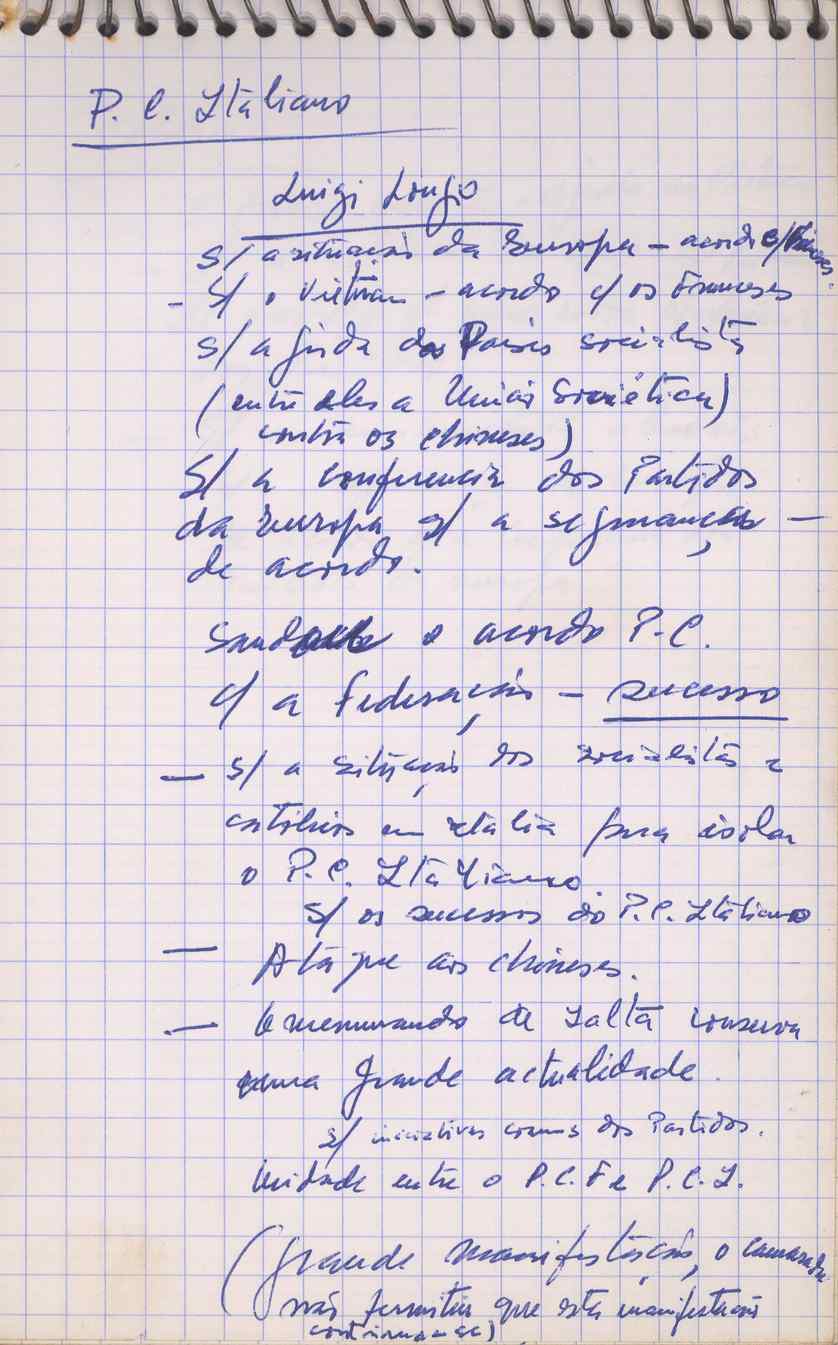 P. C. Italiano
Luigi Longo
S/ a situação da Europa – acordo c/
– S/ o Vietnam – acordo c/ os Franceses
S/ a ajuda dos Países socialistas
(entre eles a União Soviética)
contra os chineses)
S/ a conferencia dos Partidos
da Europa s/ a segurança –
de acordo.
Saud o acordo P.C.
c/ a Federação – sucesso
– S/ a situação dos socialistas e
católicos em Italia para isolar
o P.C. Italiano
S/ os sucessos do P.C. Italiano
– Ataque aos chineses.
– O memorando de Ialta conserva
uma grande actualidade.
s/ iniciativas comuns dos Partidos.
Unidade entre o P.C.F e P.C.I.
(Grande manifestação, o camarada
não permitiu que esta manifestação
continuasse)